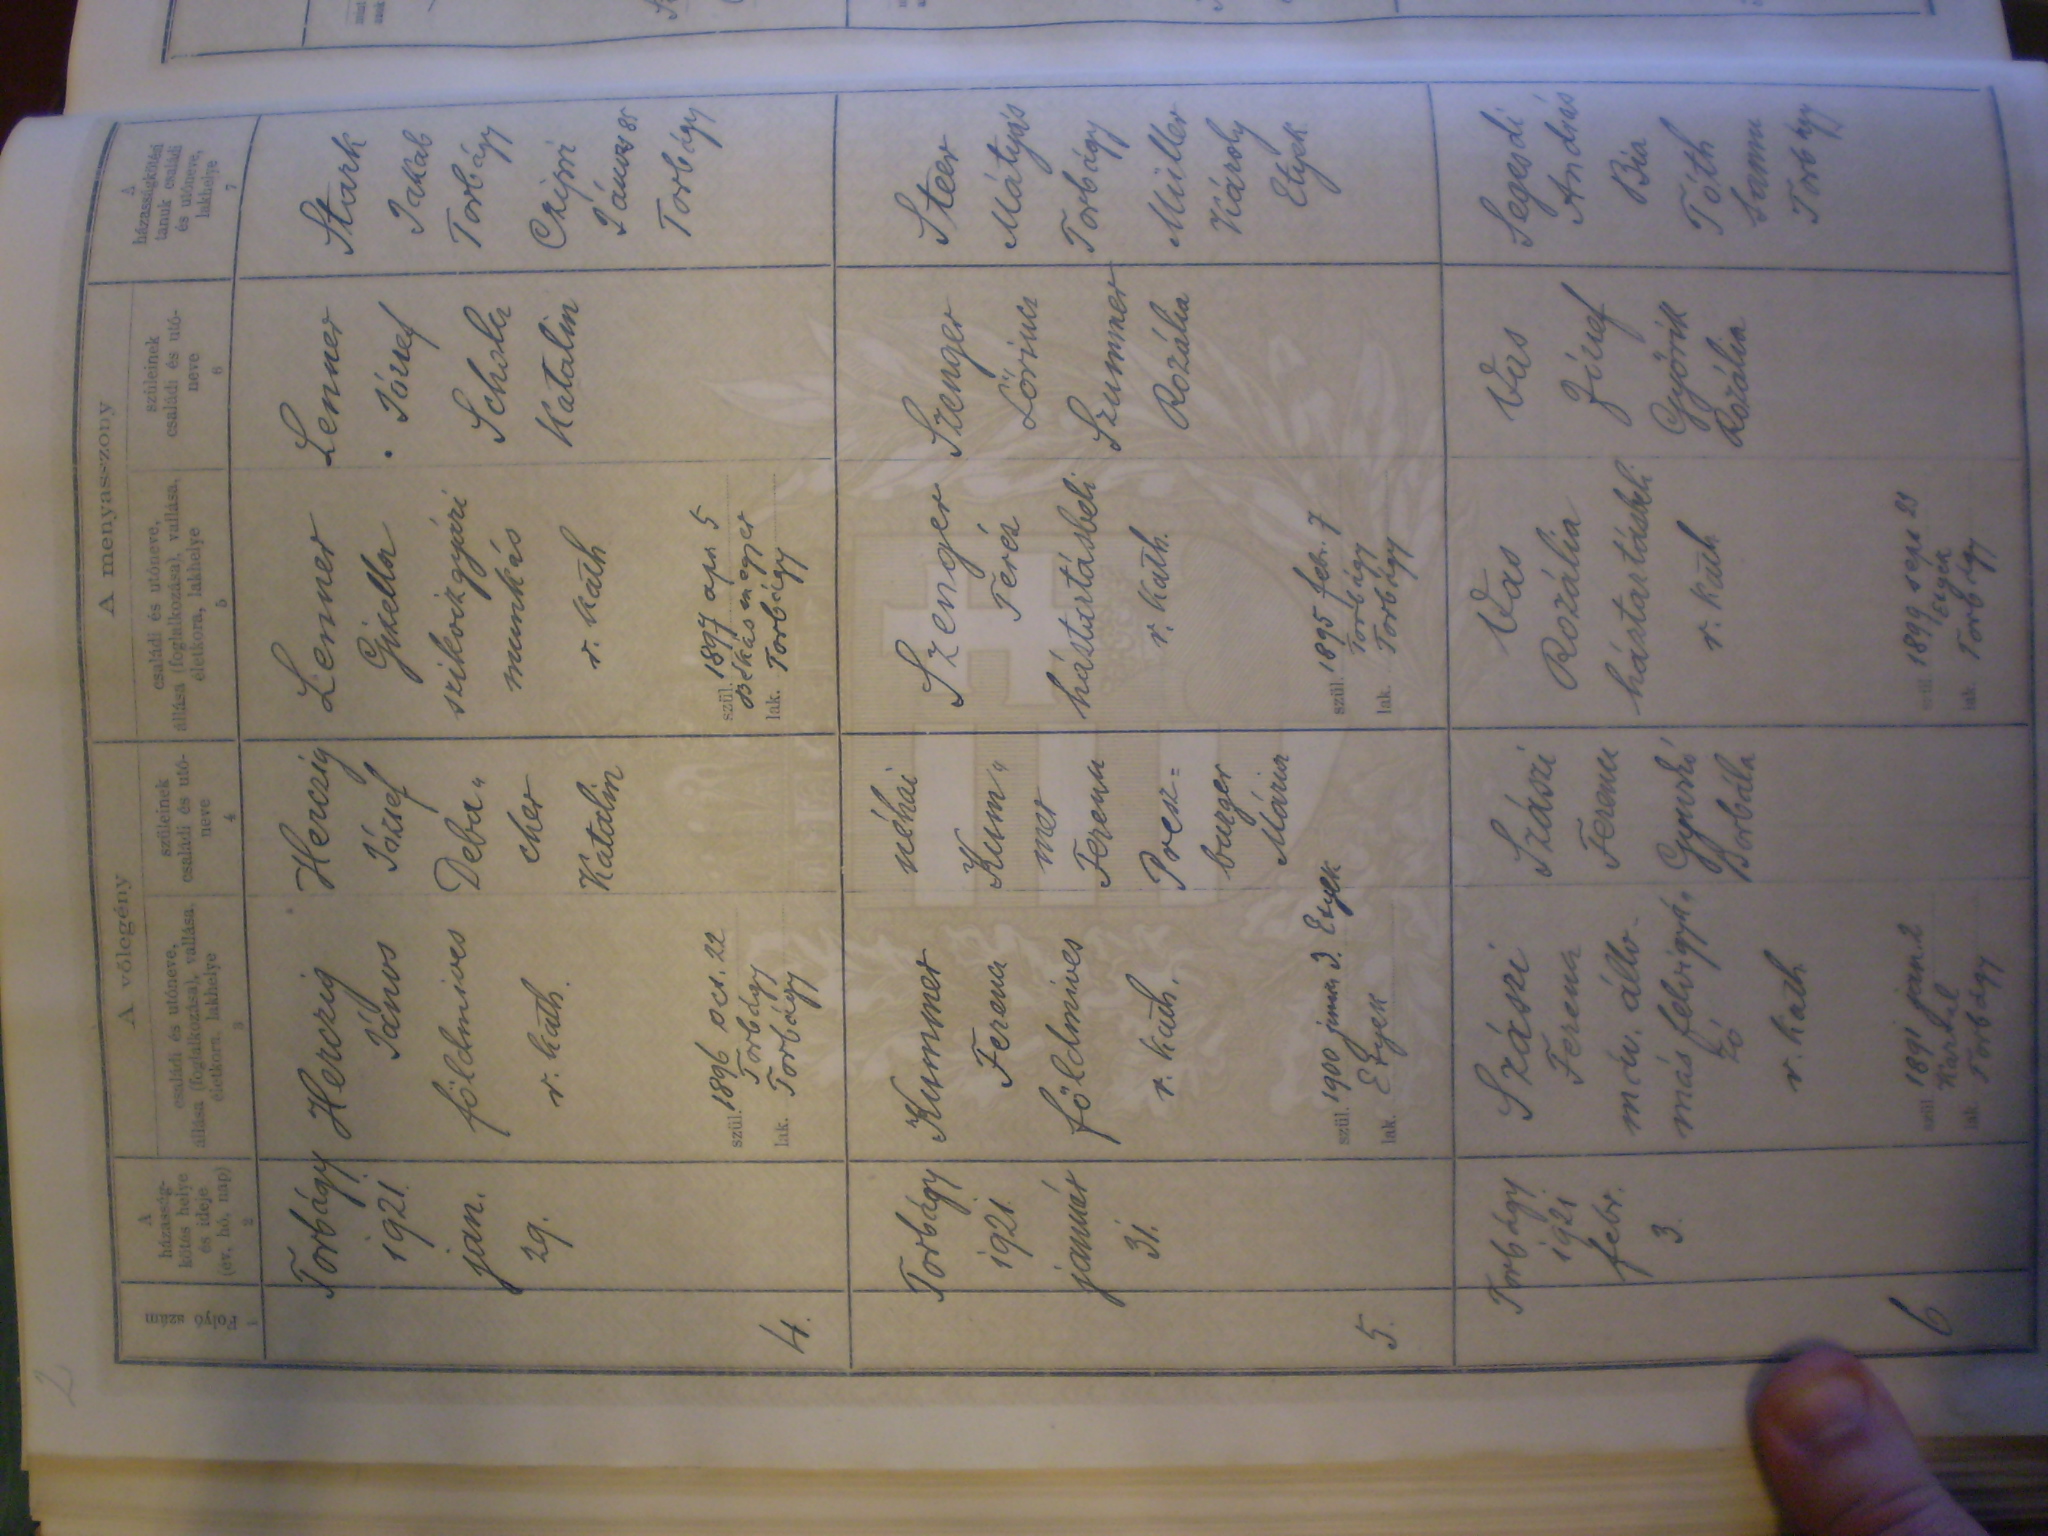 2
A vőlegény
A menyasszony
Folyó
szám
1
A
házasság-
kötés helye
és ideje
(év, hó, nap)
2
családi és utóneve,
állása (foglalkozása), vallása,
életkora, lakhelye
3
szüleinek
családi és utó-
neve
4
családi és utóneve,
állása (foglalkozása), vallása,
életkora, lakhelye
5
szüleinek
családi és utó-
neve
6
A
házasságkötési
tanuk családi
és utóneve,
lakhelye
7
4.
Torbágy
1921.
jan.
29.
Herczig
János
földmives
r. kath.
szül. 1896 oct. 22
Torbágy
lak. Torbágy
Herczig
József
Deba„
cher
Katalin
Lenner
Gizella
szikvizgyári
munkás
r. kath
szül. 1897 apr 5
Békásmegyer
lak. Torbágy
Lenner
József
Schola
Katalin
Stark
Jakab
Torbágy
Czipri
János
Torbágy
5.
Torbágy
1921.
január
31.
Kummer
Ferenc
földmives
r. kath.
szül. 1900 Etyek
lak. Etyek
néhai
Kum„
mer
Ferenc
Presz=
burger
Mária
Szenger
Teréz
háztartásbeli
r. kath.
szül. 1895 febr. 7
Torbágy
lak. Torbágy
Szenger
Lőrincz
Szummer
Rozália
Steer
Mátyás
Torbágy
Müller
Károly
Etyek
6
Torbágy
1921
febr.
3.
Szászi
Ferenc
máv. állo-
más felvigyá„
zó
r. kath
szül. 1891 jan. 2
lak. Torbágy
Szászi
Ferenc
Borbála
Vas
Rozália
háztartásbeli
r. kath
szül. 1899 sept 29
lak. Torbágy
Vas
József
Győrik
Rozália
Segesdi
András
Bia
Tóth
Torbágy